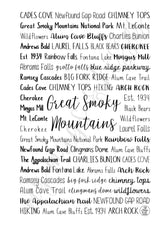 CADES COVE Newfound Gap Road CHIMNEY TOPS
Great Smoky Mountains National Park Mt. LeConte
Wildflowers Alum Cave Bluffs Charlies Bunion
Andrews Bald LAUREL FALLS BLACK BEARS CHEROKEE
Est. 1934 Rainbow Falls Fontana Lake Mingus Mill
Abrams Falls gentle falls blue ridge parkway
Ramsey Cascades BIG FORK RIDGE Alum Cave Trail
Cades Cove CHIMNEY TOPS HIKING ARCH ROCK
Cherokee Est. 1934
Mingus Mill Black Bears
Mt. LeConte Wildflowers
Cherokee Laurel Falls
Great Smoky
Mountains
Great Smoky Mountains National Park Rainbow Falls
Newfound Gap Road Clingmans Dome Alum Cave Bluffs
The Appalachian Trail CHARLIES BUNION CADES COVE
Andrews Bald Fontana Lake Abrams Falls Black Bears
Ramsey Cascades big fork ridge chimney tops
Alum Cave Trail clingmans dome wildflowers
The Appalachian Trail NEWFOUND GAP ROAD
HIKING Alum Cave Bluffs Est. 1934 ARCH ROCK